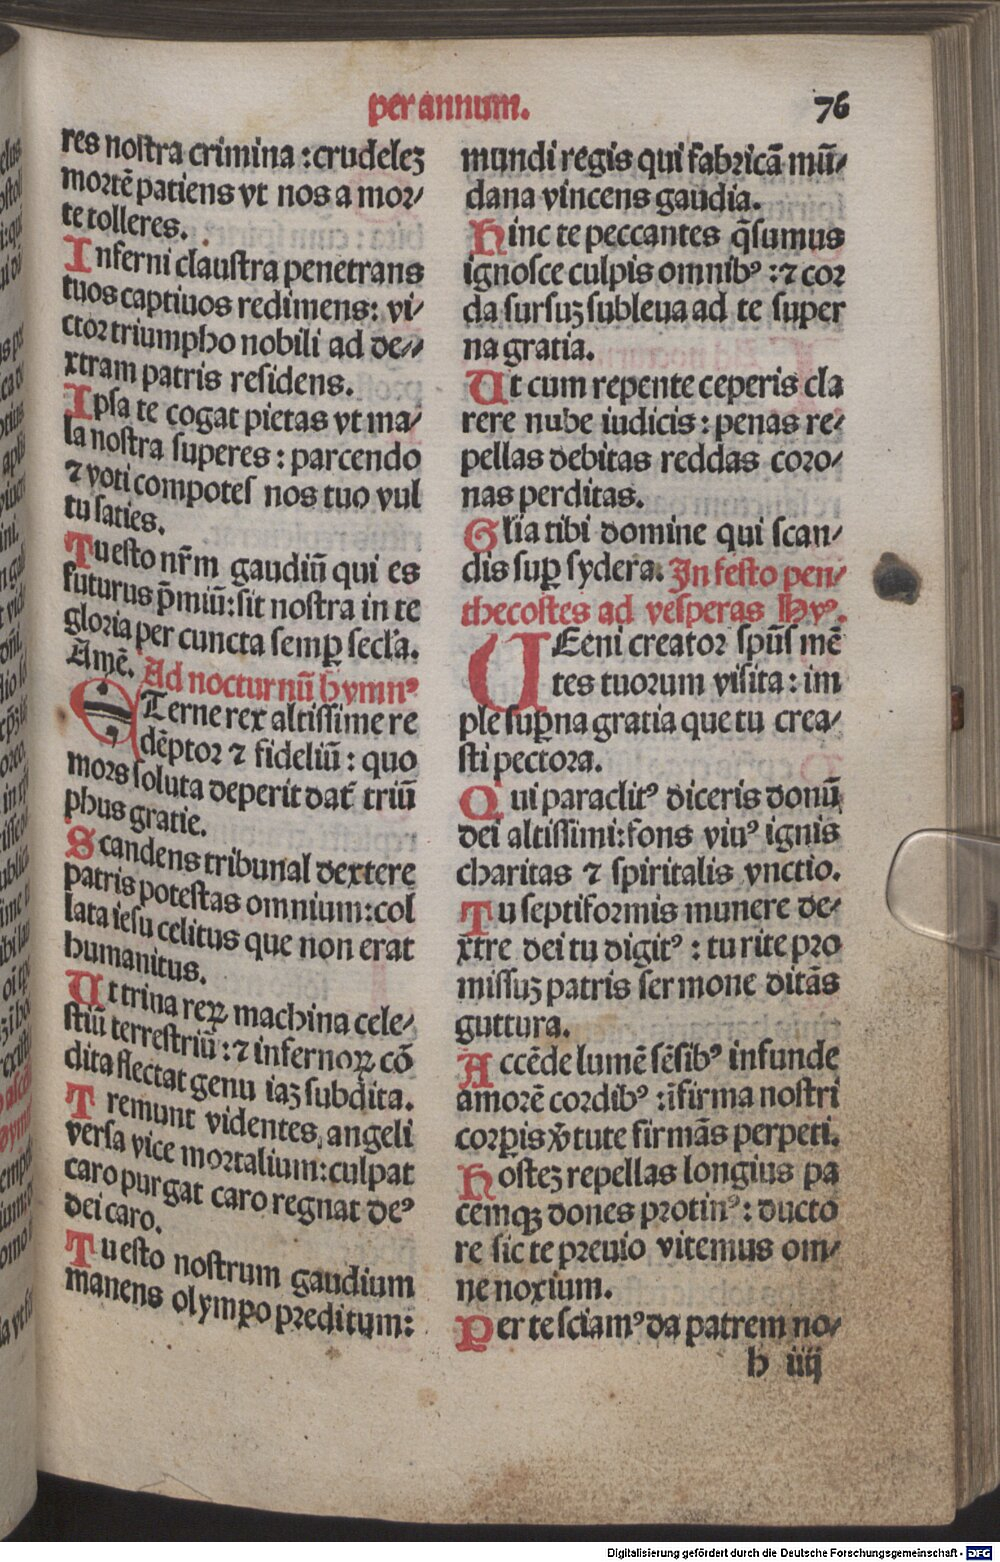 per annum.
76
res nostra crimina : crudeleʒ
mortē patiens vt nos a mor⸗
te tolleres.
Inferni claustra penetrans
tuos captiuos redimens: vi⸗
ctor triumpho nobili ad de⸗
xtram patris residens.
Ipsa te cogat pietas vt ma⸗
la nostra superes : parcendo
⁊ voti compotes nos tuo vul
tu saties.
Tu esto nr̄m gaudiū qui es
futurus p̄miū: sit nostra in te
gloria per cuncta semꝑ secl'a.
Amē. Ad nocturnū hymnꝰ
ETerne rex altissime re
dēptor ⁊ fideliū : quo
mors soluta deperit dat᷑ triū
phus gratie.
Scandens tribunal dextere
patris potestas omnium: col
lata iesu celitus que non erat
humanitus.
Ut trina reꝝ machina cele⸗
stiū terrestriū : ⁊ infernoꝝ cō
dita flectat genu iaʒ subdita.
Tremunt videntes angeli
versa vice mortalium: culpat
caro purgat caro regnat deꝰ
dei caro.
Tu esto nostrum gaudium
manens olympo preditum:
mundi regis qui fabricā mū⸗
dana vincens gaudia.
Hinc te peccantes q̄sumus
ignosce culpis omnibꝰ : ⁊ cor
da sursuʒ subleua ad te super
na gratia.
Ut cum repente ceperis cla
rere nube iudicis : penas re⸗
pellas debitas reddas coro⸗
nas perditas.
Glia tibi domine qui scan⸗
dis suꝑ sydera. In festo pen⸗
thecostes ad vesperas Hyꝰ.
UEeni creator spūs mē
tes tuorum visita : im
ple suꝑna gratia que tu crea⸗
sti pectora.
Qui paraclitꝰ diceris donū
dei altissimi: fons viuꝰ ignis
charitas ⁊ spiritalis vnctio.
Tu septiformis munere de⸗
xtre dei tu digitꝰ : tu rite pro
missuʒ patris sermone ditās
guttura.
Accēde lumē sēsibꝰ infunde
amorē cordibꝰ : īfirma nostri
corꝑis v̄tute firmās perpeti.
Hosteʒ repellas longius pa
cemqʒ dones protinꝰ : ducto
re sic te preuio vitemus om⸗
ne noxium.
Per te sciamꝰ da patrem no⸗
h iiij
Digitalisierung gefördert durch die Deutsche Forschungsgemeinschaft - DFG